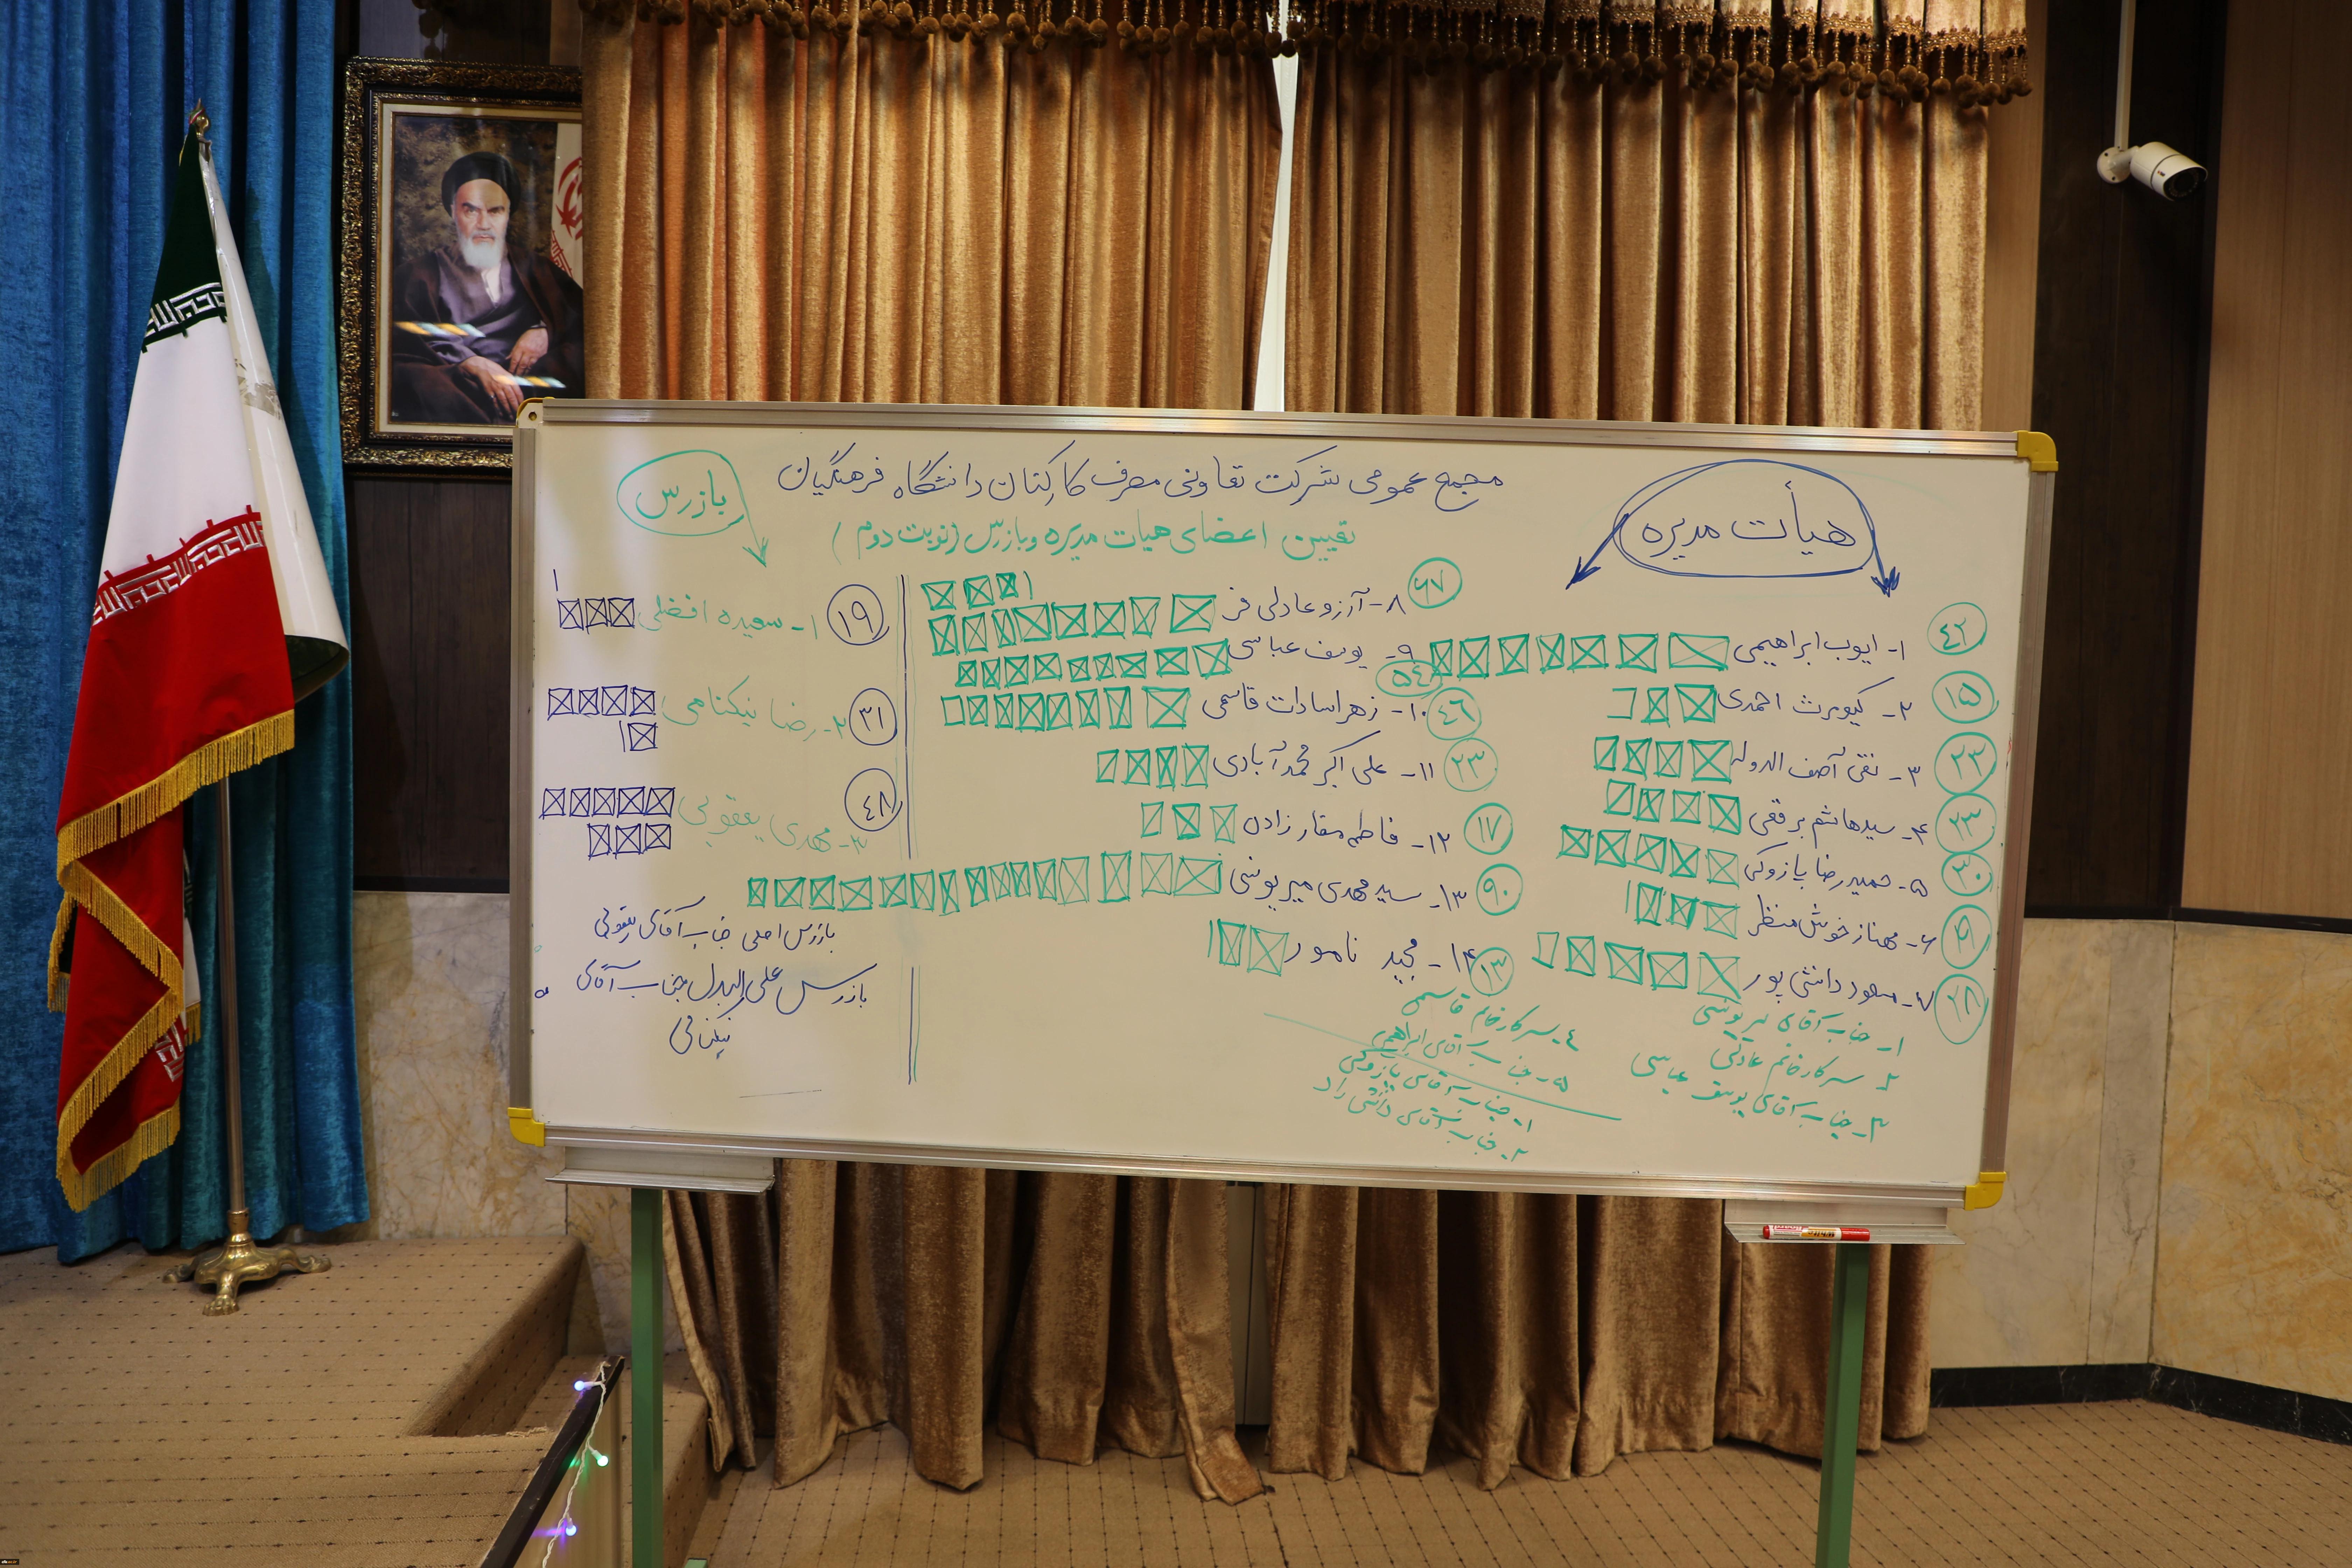 مجمع عمومی شرکت تعاونی مصرف کارکنان دانشگاه فرهنگیان
تعیین اعضای هیات مدیره و بازرس (نوبت دوم)
هیأت مدیره
۱- ایوب ابراهیمی ۴۲
۲- کیومرث احمدی ۱۵
۳- تقی آصف الدوله ۲۳
۴- سید هاشم برقعی ۲۳
۵- حمید رضا پازوکی ۳۰
۶- مهناز خوش منظر
۷- مسعود دانشی پور ۲۸
۸- آرزو عادلی فر ۶۷
۹- یوسف عباسی ۵۴
۱۰- زهرا سادات قاسمی ۴۶
۱۱- علی اکبر محمدآبادی ۲۳
۱۲- فاطمه صفار زاده ۱۷
۱۳- سید مهدی میریونسی ۹۰
۱۴- مجید نامور ۱۳
۱- جناب آقای میریونسی
۲- سرکار خانم عادلی
۳- جناب آقای یوسف عباسی
۴- سرکار خانم قاسمی
۵- جناب آقای ابراهیمی
۱- جناب آقای پازوکی
۲- جناب آقای
بازرس
۱- سعیده افضلی ۱۹
۲- رضا نیکنامی ۳۱
۳- مهدی یعقوبی ۴۸
بازرس اصلی جناب آقای یعقوبی
بازرس علی البدل جناب آقای
نیکنامی